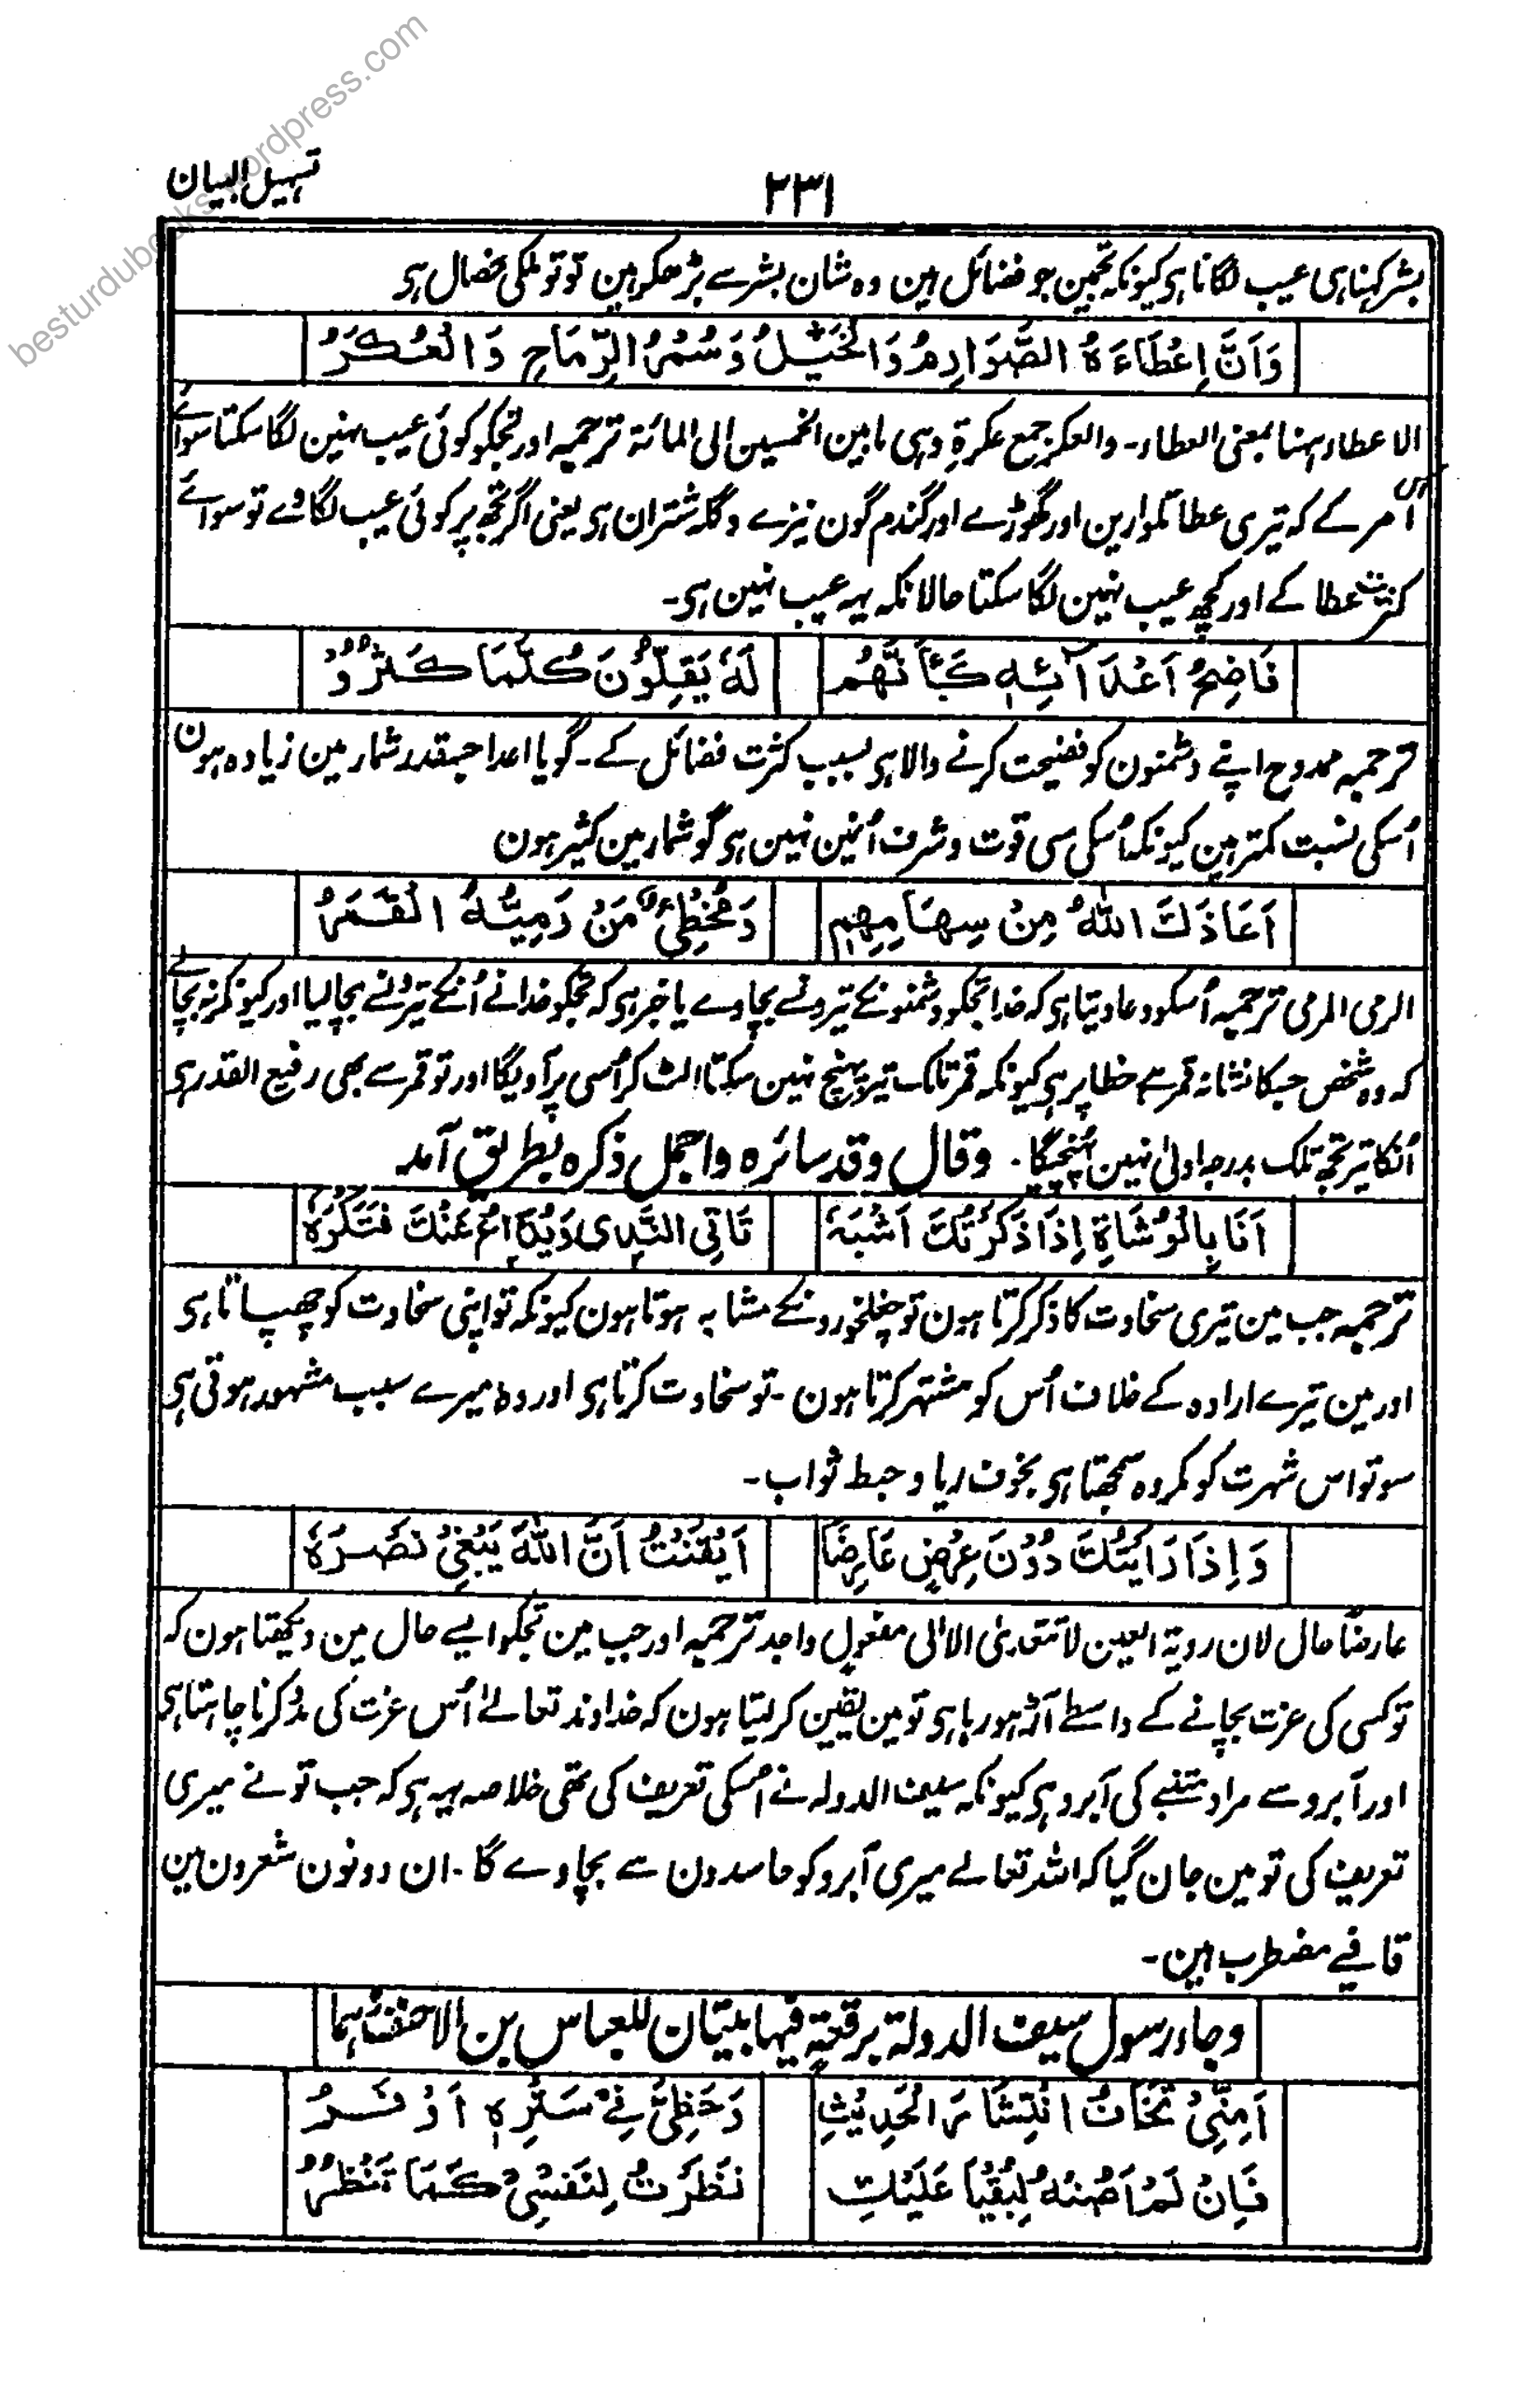 تسہیل البیان
۲۳۱
بشر کہنا ہی عیب لگانا ہی کیونکہ تجھمین جو فضائل ہین وہ شان بشر سے بڑھکر ہین تو تو ملکی خصال ہی
وَاَنَّ اِعْطَاءَهُ الصَّوَارِمُ وَالْخَيْلُ وَسُمْرُ الرِّمَاحِ وَالْعُكَرُ
الاعطاء ہہنا بمعنی العطاء۔ والعکر جمع عکرۃ وہی مابین الخمسین الی المائۃ ترجمہ اور تجکو کوئی عیب نہین لگا سکتا سوائے
اس امر کے کہ تیری عطا تلوارین اور گھوڑے اور گندم گون نیزے و گلہ شتران ہی یعنی اگر تجھ پر کوئی عیب لگاوے تو سوائے
کثرت عطا کے اور کچھ عیب نہین لگا سکتا حالانکہ یہہ عیب نہین ہی۔
فَاضِحُ اَعْدَآئِهٖ كَاَنَّهُمْ لَهٗ يَقِلُّوْنَ كُلَّمَا كَثُرُوْا
ترجمہ ممدوح اپنے دشمنون کو فضیحت کرنے والا ہی بسبب کثرت فضائل کے۔ گویا اعدا جسقدر شمار مین زیادہ ہون
اُسکی نسبت کمتر ہین کیونکہ اُسکی سی قوت و شرف اُنین نہین ہی گو شمار مین کثیر ہون
اَعَاذَكَ اللّٰهُ مِنْ سِهَامِهِمْ وَمُخْطِئٌ مَنْ رَمِيُّهُ الْقَمَرُ
الرمی المرمی ترجمہ اُسکو دعا دیتا ہی کہ خدا تجکو دشمنونکے تیرونسے بچاوے یا خبر ہی کہ تجکو خدا نے اُنکے تیرونسے بچا لیا اور کیونکر نہ بچائے
کہ وہ شخص جسکا نشانہ قمر ہے خطا پر ہی کیونکہ قمر تلک تیر پہنچ نہین سکتا الٹ کر اُسی پر آویگا اور تو قمر سے بھی رفیع القدر ہی
اُنکا تیر تجھ تلک بدرجہ اولیٰ نہین پہنچیگا۔ وقال وقد سائرہ واجمل ذکرہ بطریق آمد
اَنَا بِالْوُشَاةِ اِذَا ذَكَرْتُكَ اَشْبَهُ تَاْتِي النَّدٰى وَيُذَاعُ عَنْكَ فَتَكْرَهُ
ترجمہ جب مین تیری سخاوت کا ذکر کرتا ہون تو چغلخورونکے مشابہ ہوتا ہون کیونکہ تو اپنی سخاوت کو چھپاتا ہی
اور مین تیرے ارادہ کے خلاف اُس کو مشتہر کرتا ہون۔ تو سخاوت کرتا ہی اور وہ میرے سبب مشہور ہوتی ہی
سو تو اس شہرت کو مکروہ سمجھتا ہی بخوف ریا و حبط ثواب۔
وَاِذَا رَاَيْتُكَ دُوْنَ عِرْضٍ عَارِضًا اَيْقَنْتُ اَنَّ اللّٰهَ يَبْغِيْ نَصْرَهُ
عارضًا حال لان رویۃ العین لا تتعدی الا الی مفعول واحد ترجمہ اور جب مین تجکو ایسے حال مین دیکھتا ہون کہ
تو کسی کی عزت بچانے کے واسطے آڑ ہو رہا ہی تو مین یقین کر لیتا ہون کہ خداوند تعالےٰ اُس عزت کی مدد کرنا چاہتا ہی
اور آبرو سے مراد متنبی کی آبرو ہی کیونکہ سیف الدولہ نے اُسکی تعریف کی تھی خلاصہ یہہ ہی کہ جب تو نے میری
تعریف کی تو مین جان گیا کہ اللہ تعالےٰ میری آبرو کو حاسدون سے بچاوے گا۔ ان دونون شعرون مین
قافیے مضطرب ہین۔
وجاء رسول سیف الدولۃ برقعۃ فیہا بیتان للعباس بن الاحنف ہما
اَمِنِّيْ تَخَافُ انْتِشَارَ الْحَدِيْثِ وَحَظِّيَ فِيْ سَتْرِهٖ اَوْفَرُ
فَاِنْ لَمْ اَصُنْهُ لِبُقْيَا عَلَيْكَ نَظَرْتُ لِنَفْسِيْ كَمَا تَنْظُرُ
besturdubooks.wordpress.com